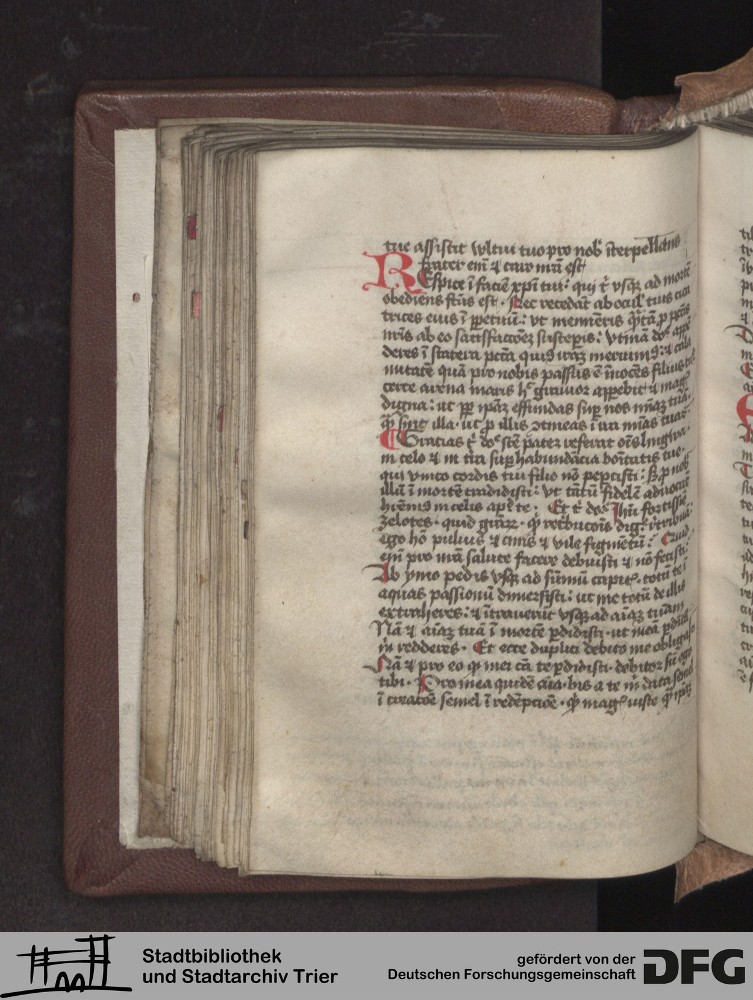 tue assistit vultui tuo pro nob̉ īterpellans
frater eni᷒ ⁊ caro nr̄a est
Respice ī faciē xp̄i tui: qui t̉ vsq᷒ ad mortē
obediens fc̄us est. Nec recedāt ab ocul᷒ tuis cica
trices eius ī ꝑpetuū: vt memīeris q̄ntā ꝓ pctīs
nr̄is ab eo satisfactōeꝫ susceperis: vtinā dō᷒ appē
deres ī statera pctā quib᷒ irāꝫ meruim᷒: ⁊ cala
mitatē quā pro nobis passus ē īnocēs filius tu᷒
certe arena maris h᷒ grauior appebit ⁊ mag᷒
digna: ut ꝓp̄ ip̄aꝫ effundas sup̄ nos mīaꝫ tuā.
Gracias t᷒ dō᷒ st̄e pater referat oīs lingwa.
in celo ⁊ in tr̄a sup̄habundācia boītatis tue.
qui vnico cordis tui filio nō peꝑcisti: sꝫ ꝓ nob̉
illū ī mortē tradidisti: vt tātū fidelē aduocatū
hr̄em᷒ in celis apd̉ te. Et t᷒ dō᷒ Jhū fortissie᷒
zelotes. quid grāꝝ. retbucōis dig᷒
ego hō puluis ⁊ cinis ⁊ vile figmētū: Quid
eni᷒ pro mr̄a salute facere debuisti ⁊ nō fecisti:
Ab ymo pedis vsq᷒ ad sūmū capit᷒. totū te ī
aquas passionū dimersisti: ut me totū de illis
extraheres: ⁊ ītrauerūt vsq᷒ ad aīaꝫ tuam
Nā ⁊ aīaꝫ tuā ī mortē ꝑdidisti. ut meā ꝑditā
m̄ redderes. Et ecce duplici debito me obligasti
Nā ⁊ pro eo qđ mei cā te ꝑdidisti. debitor sū ego
tibi. Pro mea quidē aīa. bis a te m̄ data semel
ī creacōe semel ī redēpcōe. qđ mag᷒ iuste
Stadtbibliothek
und Stadtarchiv Trier
gefördert von der
Deutschen Forschungsgemeinschaft
DFG